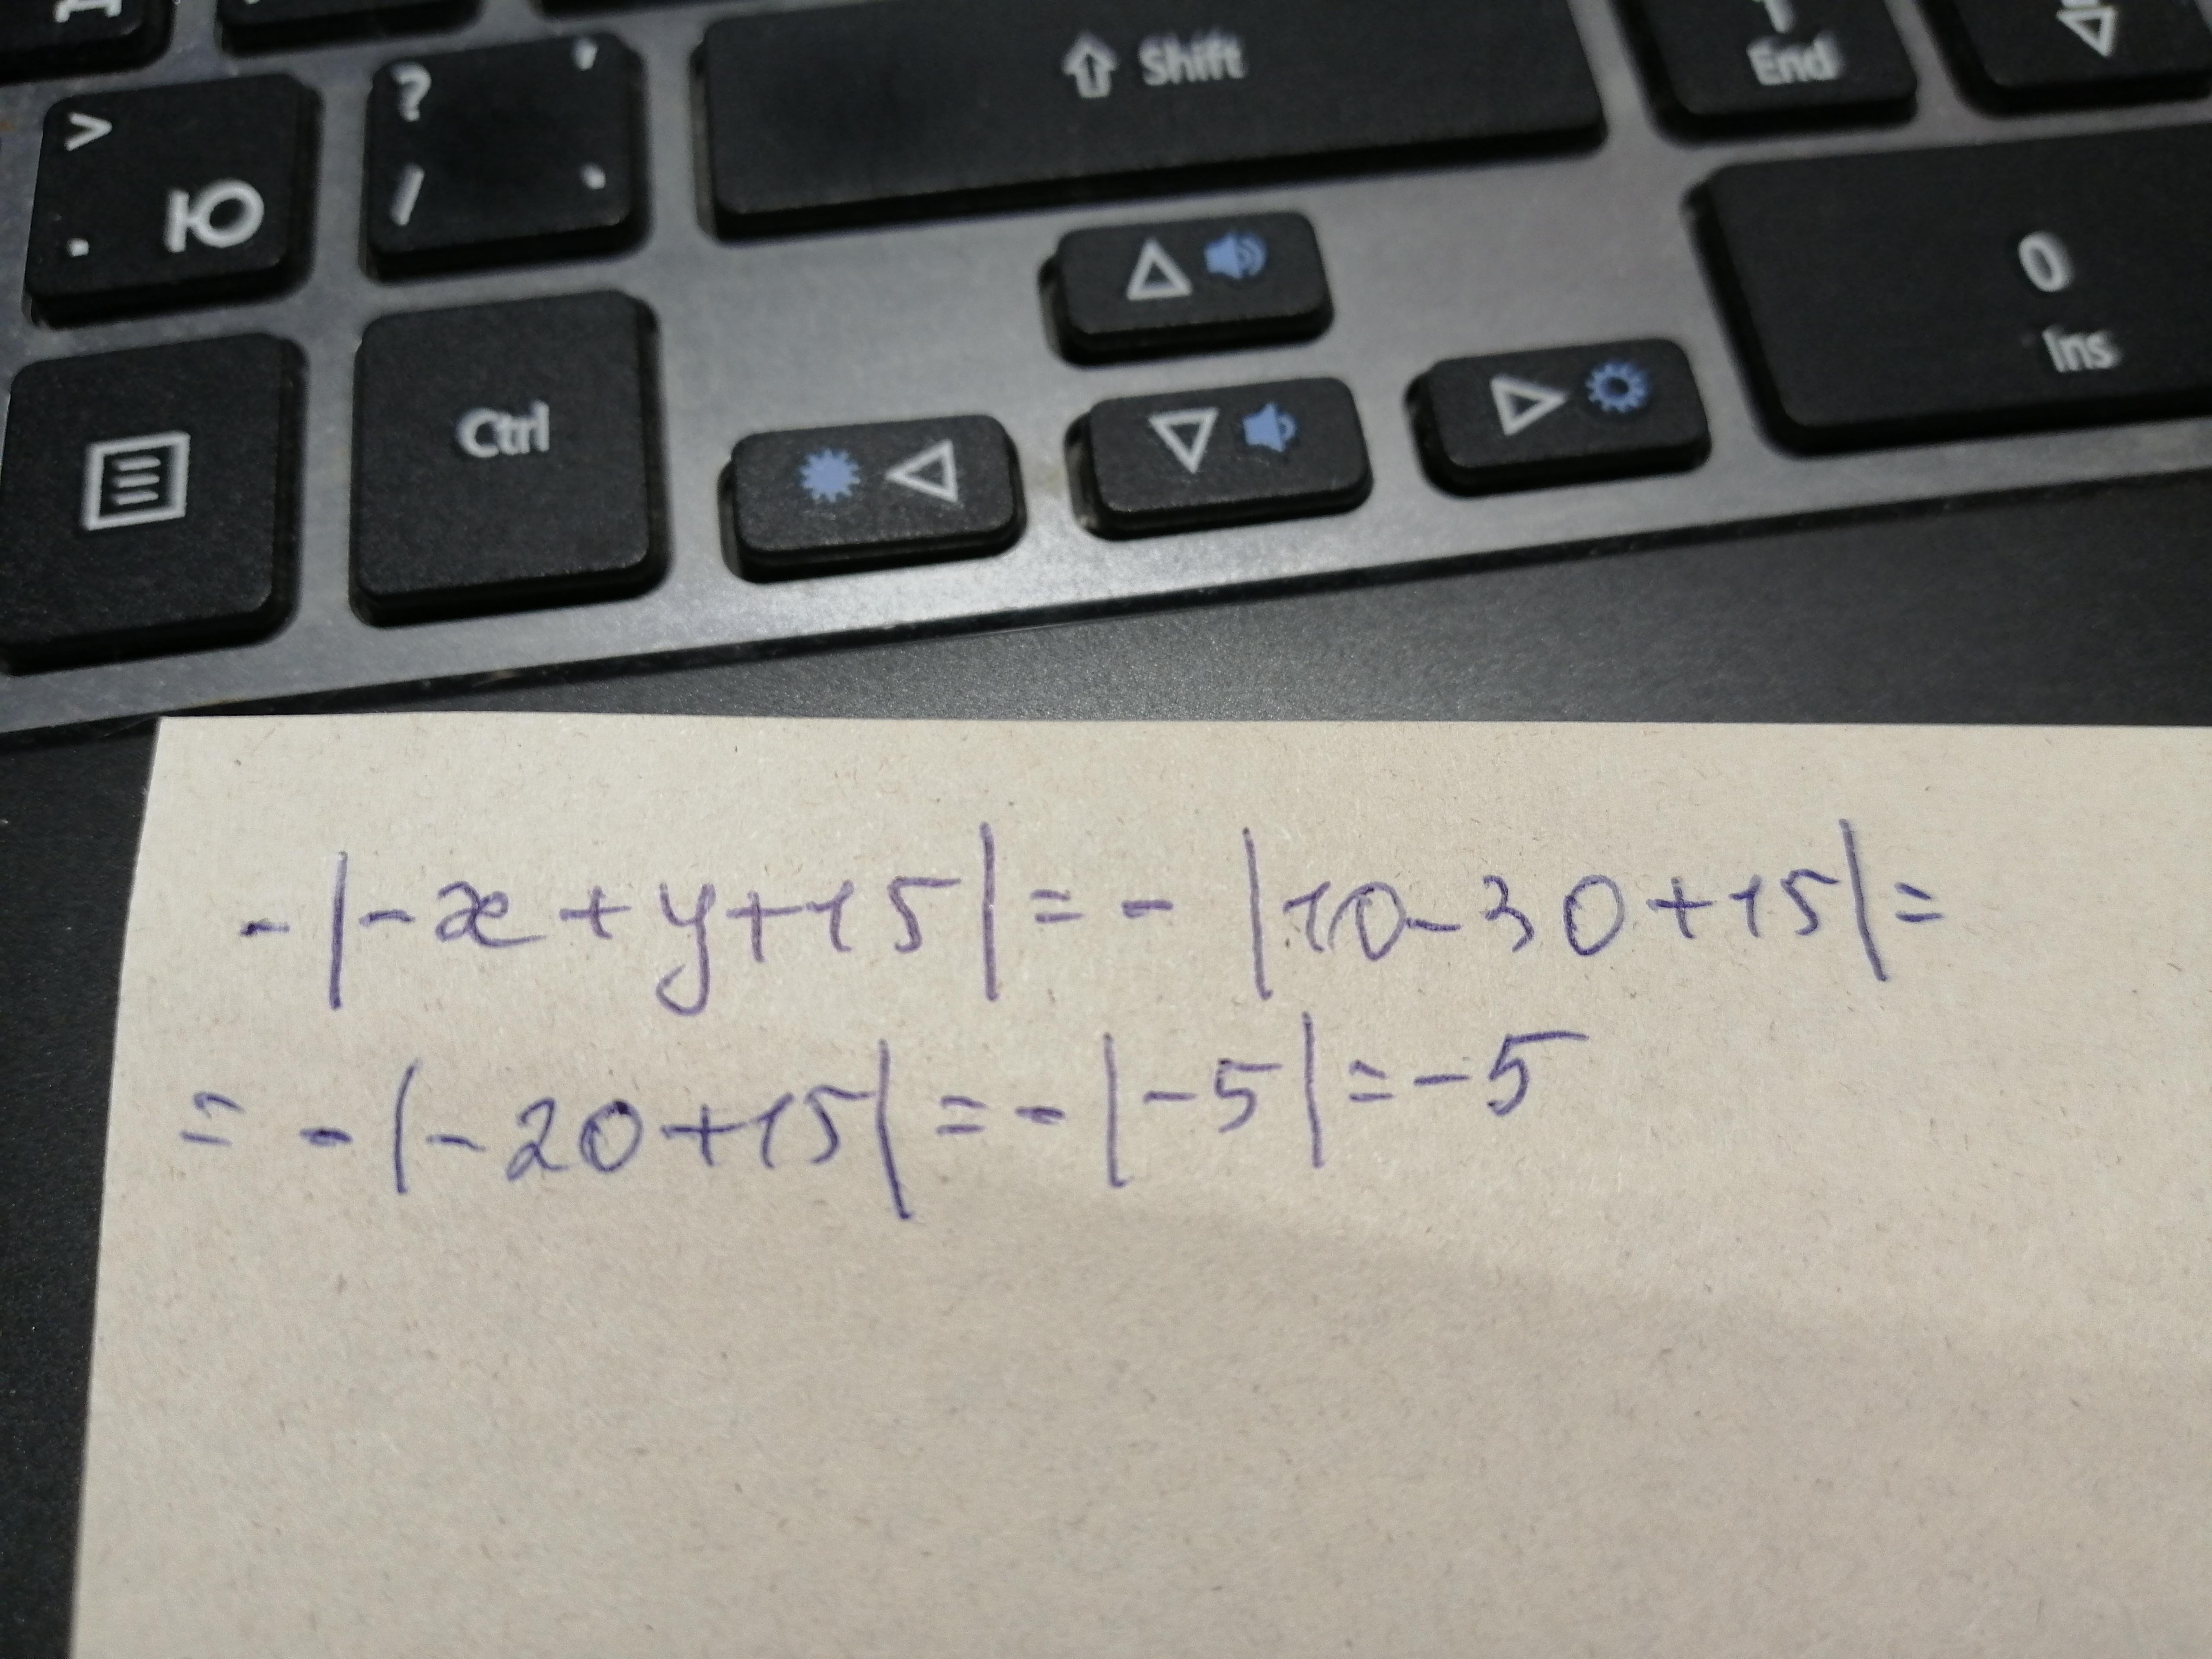 > . Ю
? / , .
⇧ Shift
End
Ctrl
0
Ins
-|-x+y+15|=-|10-30+15|=
=-|-20+15|=-|-5|=-5